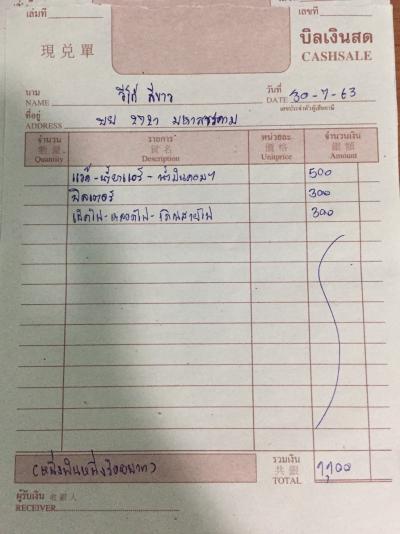 เล่มที่ เลขที่
現兑單
บิลเงินสด
CASHSALE
นาม
NAME วีโก้ สีขาว
วันที่
DATE 30-7-63
เลขประจำตัวผู้เสียภาษี
ที่อยู่
ADDRESS มหาสารคาม
จำนวน รายการ หน่วยละ จำนวนเงิน
數量 貨名 價格 銀額
Quantity Description Unitprice Amount
500
ฟิลเตอร์ 300
เช็คไฟ-หลอดไฟ-เดินสายไฟ 300
(หนึ่งพันหนึ่งร้อยบาท)
รวมเงิน
共銀
TOTAL 1,100
ผู้รับเงิน 收銀人
RECEIVER